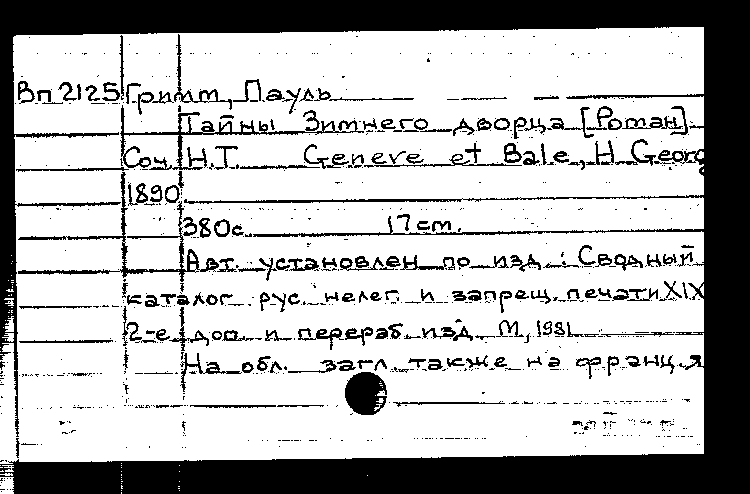 Вп 2125 Гримм, Пауль
Тайны Зимнего дворца [Роман].
Соч. Н.Т. Geneve et Bale, H. Georg
1890.
380с. 17cm.
Авт. установлен по изд.: Сводный
каталог рус. нелег. и запрещ. печати XIX
2-е доп. и перераб. изд. М., 1981
На обл. загл. также на франц. я